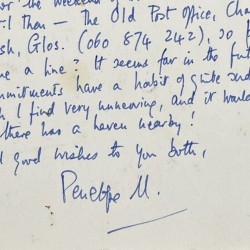 or the weekend of
then – The Old Post Office, Cha
sh, Glos. (060 874 242), so
me a line? It seems far in the futu
mmitments have a habit of quite sud
I find very unnerving, and it would
there was a haven nearby!
d good wishes to you both,
Penelope M.